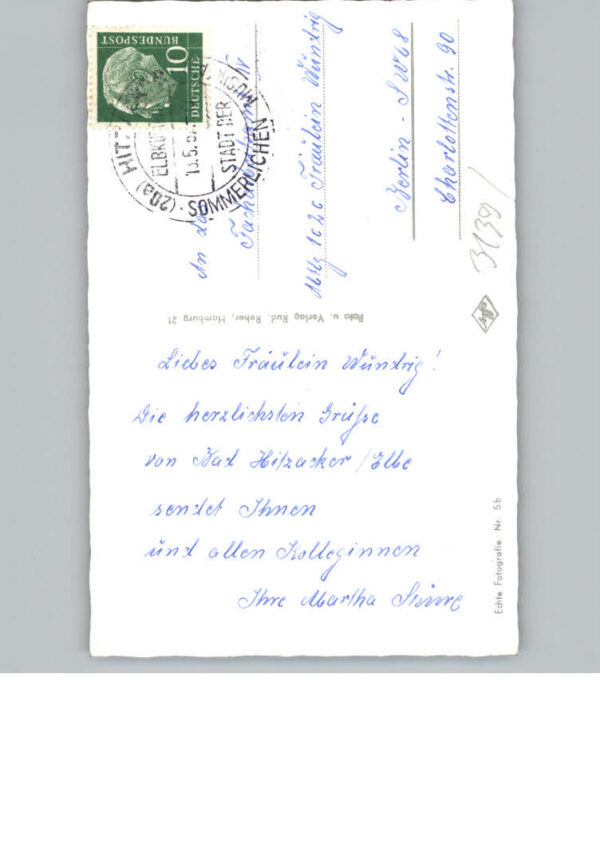 DEUTSCHE
BUNDESPOST
10
(20a) HITZ
ELBKU
STADT DER
SOMMERLICHEN
MUSIK
An da
Abtlg 1c2c Fräulein Wündrig
Berlin - SW68
Charlottenstr. 90
3139/
Foto u. Verlag Rud. Reher, Hamburg 21
Liebes Fräulein Wündrig!
Die herzlichsten Grüße
von Bad Hitzacker/Elbe
sendet Ihnen
und allen Kolleginnen
Ihre Martha
Echte Fotografie Nr. 5b